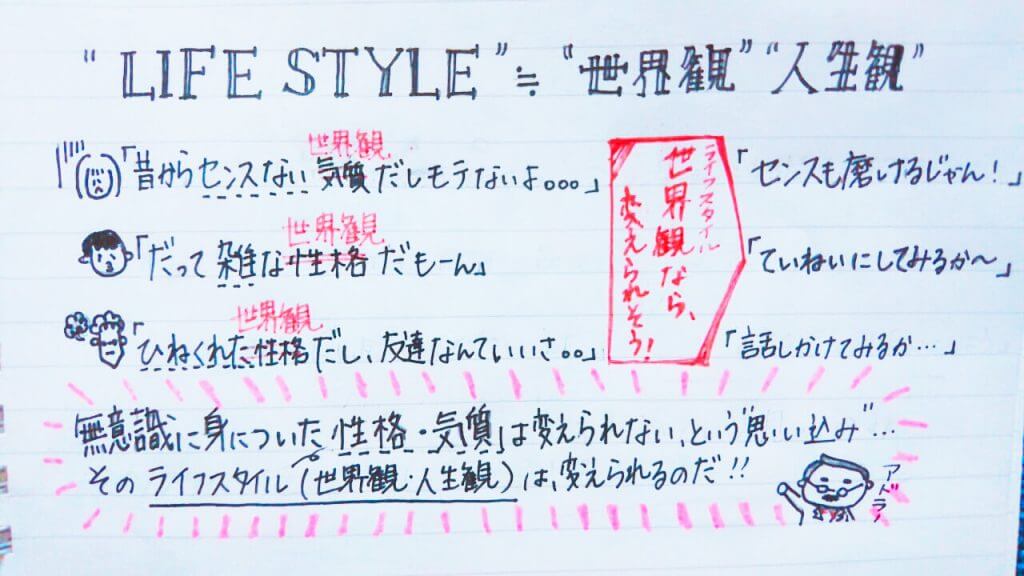 “LIFE STYLE”≒“世界観”“人生観”
世界観
「昔からセンスない気質だしモテないよ。。。」
世界観
「だって雑な性格だもーん」
世界観
「ひねくれた性格だし、友達なんていいさ。。」
ライフスタイル
世界観なら、
変えられそう!
「センスも磨けるじゃん!」
「ていねいにしてみるか〜」
「話しかけてみるか…」
無意識に身についた「性格・気質」は変えられない、という“思い込み”…
その ライフスタイル(世界観・人生観)は、変えられるのだ!!
アドラー